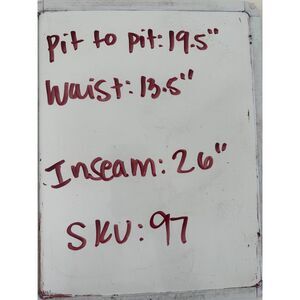 Pit to pit: 19.5"
Waist: 13.5"
Inseam: 26"
SKU: 97